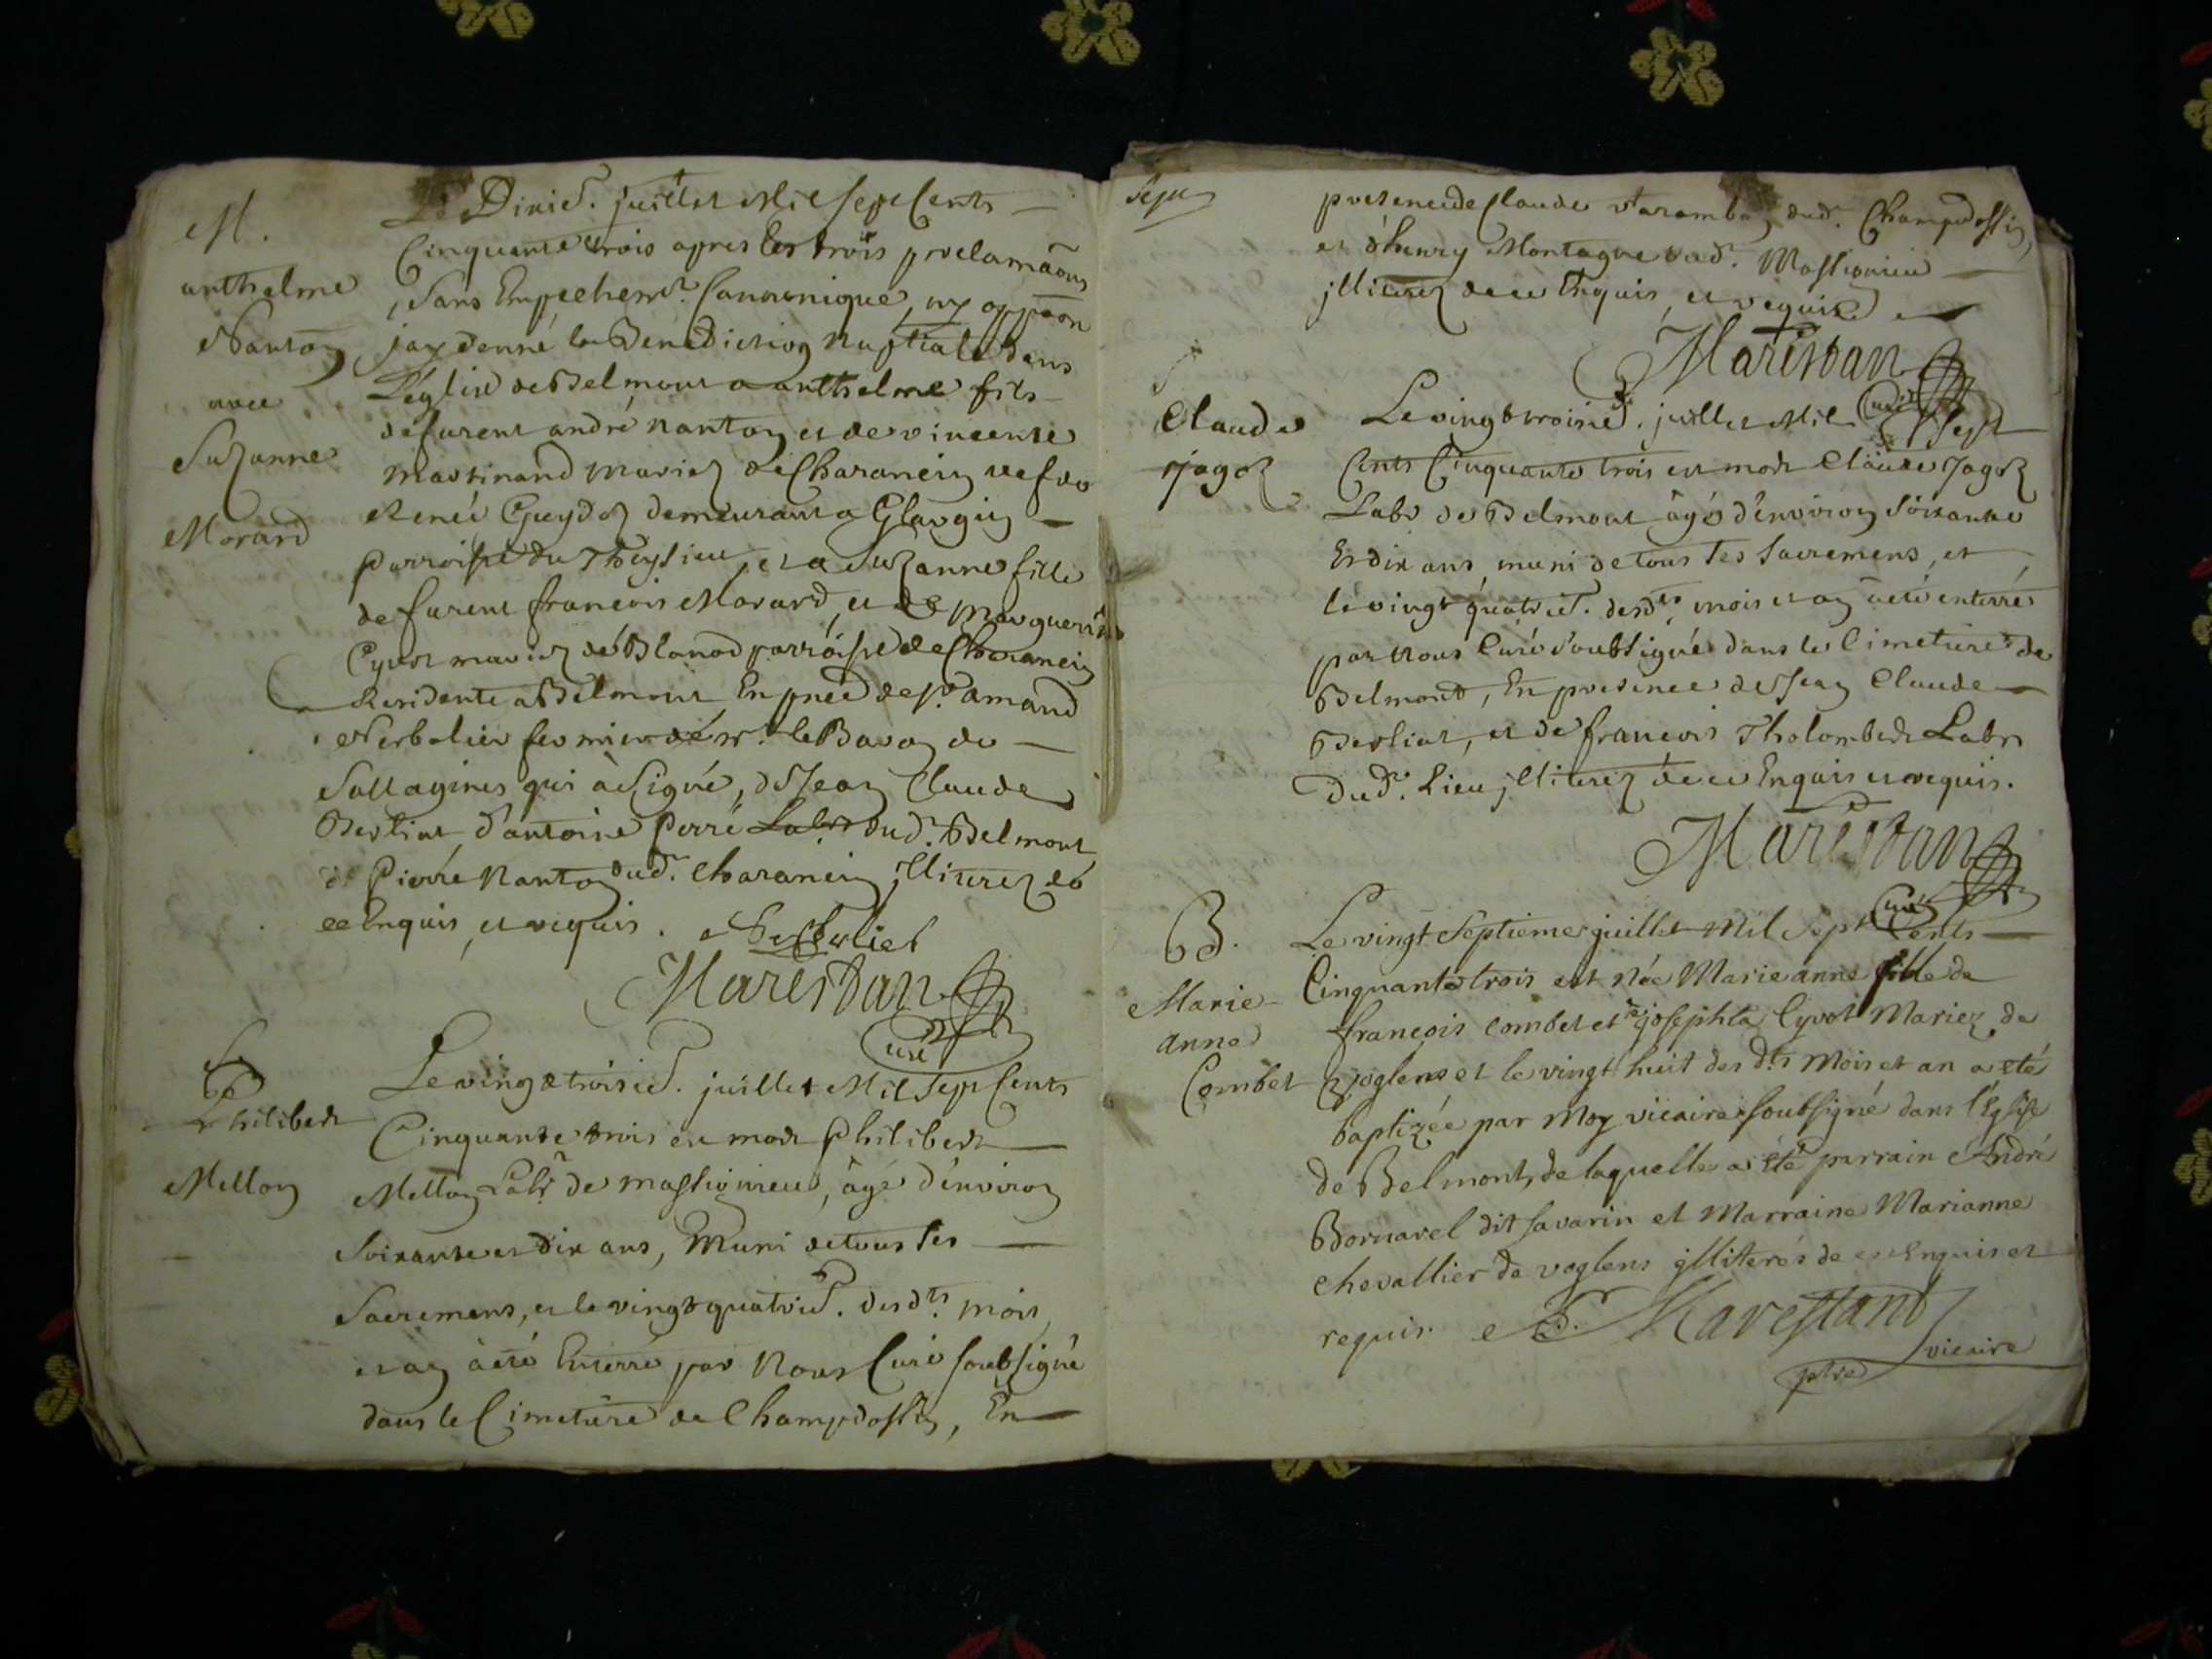 M.
anthelme
Nanton
avec
Suzanne
Morard
Le Dixie. juillet Mil sept Cents
Cinquante trois apres les trois proclamãons
, Sans Empechemt. Canonnique, ny oppõon
jay donné la Benediction Nuptiale dans
L'églize de Belmont a anthelme fils
defurent andré Nanton et de vincente
Martinand mariez de Charancin vef de
Renée Guydoz demeurant a
parroisse du Theysieu, et a Suzanne fille
defurent francois Morard, et de Marguerite
Cyvot mariez de Blanod parroisse de Charancin
Residente a Belmont En pñce de Sr. amand
Nerbolier fermier de Mr. le Baron de
Sallagines qui à Signé, de Jean Claude
Berliat, d'antoine perré Labr dud. Belmont
de Pierre Nanton dud. Charancin jlliterez de
ce Enquis, et requis.
Marestan
curé
Philibert
Mellon
Le vingt troisie. juillet Mil sept Cents
Cinquante trois est mort Philibert
Mellon Labr. de Massionieu, âgé d'environ
Soixante et dix ans, Muni de tous ses
Sacremens, et le vingt quatrie. desdts. mois
et an à eté Enterré par Nous Curé soubsigné
dans le Cimetiere de Champdossin, En
Sepn
presence de Claude Varambon dud. Champdossin,
et d'henry Montagne dud. Massionieu
jlliterez de ce Enquis, et requis
Marestan
curé
Claude
Jagoz
Le vingt troisie. juillet Mil Sept
Cents Cinquante trois est mort Claude Jagoz
Labr de Belmont âgé d'environ Soixante
Et dix ans, muni de tous ses Sacremens, et
le vingt quatrie. desdts. mois et an a eté enterré
par Nous Curé soubsigné dans le Cimetiere de
Belmont, En presence de Jean Claude
Berliat, et de francois Tholombert Labrs
dud. Lieu jlliterez de ce Enquis et requis.
Marestan
curé
B.
Marie
anne
Combet
Le vingt Septieme juillet Mil Sept Cents
Cinquante trois est Née Marie anne fille de
françois Combet et josephta Cyvot Mariez de
voglens et le vingt huit des dts Mois et an a eté
baptizée par Moy vicaire soubsigné dans l'Eglise
de Belmont, de laquelle a eté parrain André
Bornarel dit savarin et Marraine Marianne
chevallier de voglens jlliterés de ce Enquis et
requis. Marestant
ptre vicaire